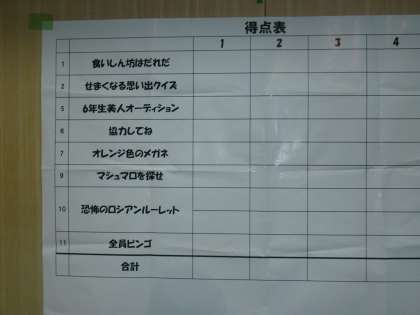 得点表
1 2 3 4
1 食いしん坊はだれだ
2 せまくなる思い出クイズ
5 6年生美人オーディション
6 協力してね
7 オレンジ色のメガネ
9 マシュマロを探せ
10 恐怖のロシアンルーレット
11 全員ビンゴ
合計